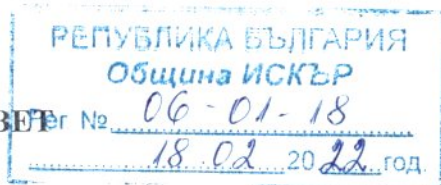 РЕПУБЛИКА БЪЛГАРИЯ
Община ИСКЪР
ВЕТ Рег № 06-01-18
18.02 2022 год.